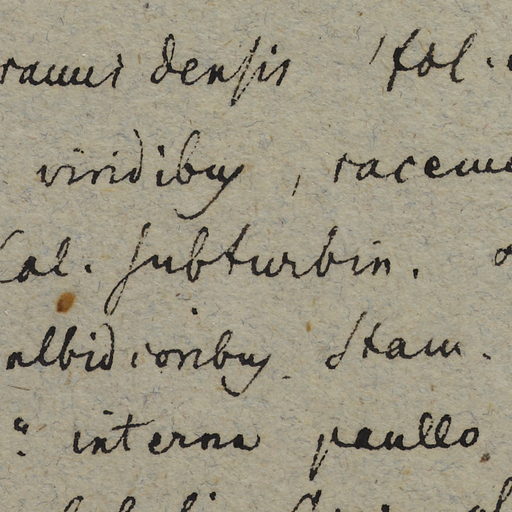 ramis densis fol.
viridibus, racemo
Cal. subturbin.
albidioribus Stam.
interna paullo